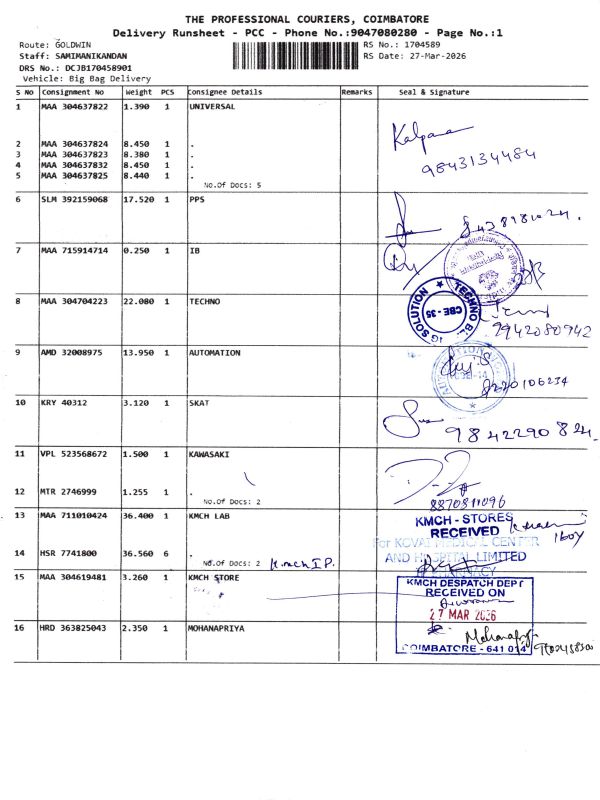 THE PROFESSIONAL COURIERS, COIMBATORE
Delivery Runsheet - PCC - Phone No.:9047080280 - Page No.:1
Route: GOLDWIN
RS No.: 1704589
Staff: SAMIMANIKANDAN
RS Date: 27-Mar-2026
DRS No.: DCJB170458901
Vehicle: Big Bag Delivery
S NO Consignment No Weight PCS Consignee Details Remarks Seal & Signature
1 MAA 304637822 1.390 1 UNIVERSAL
Kalpana
2 MAA 304637824 8.450 1 .
3 MAA 304637823 8.380 1 .
4 MAA 304637832 8.450 1 .
5 MAA 304637825 8.440 1 .
9843134484
No.Of Docs: 5
6 SLM 392159068 17.520 1 PPS
7 MAA 715914714 0.250 1 IB
8 MAA 304704223 22.080 1 TECHNO
TECHNO BIG SOLUTION
CBE - 35
9942080942
9 AMD 32008975 13.950 1 AUTOMATION
8220106234
10 KRY 40312 3.120 1 SKAT
9842290824
11 VPL 523568672 1.500 1 KAWASAKI
12 MTR 2746999 1.255 1 .
No.Of Docs: 2
8870811096
13 MAA 711010424 36.400 1 KMCH LAB
KMCH - STORES
RECEIVED
For KOVAI MEDICAL CENTER
14 HSR 7741800 36.560 6 .
No.Of Docs: 2 Kmch I.P.
AND HOSPITAL LIMITED
PHARMACY
15 MAA 304619481 3.260 1 KMCH STORE
KMCH DESPATCH DEPT
RECEIVED ON
27 MAR 2026
16 HRD 363825043 2.350 1 MOHANAPRIYA
Mohanapriya
COIMBATORE - 641 014